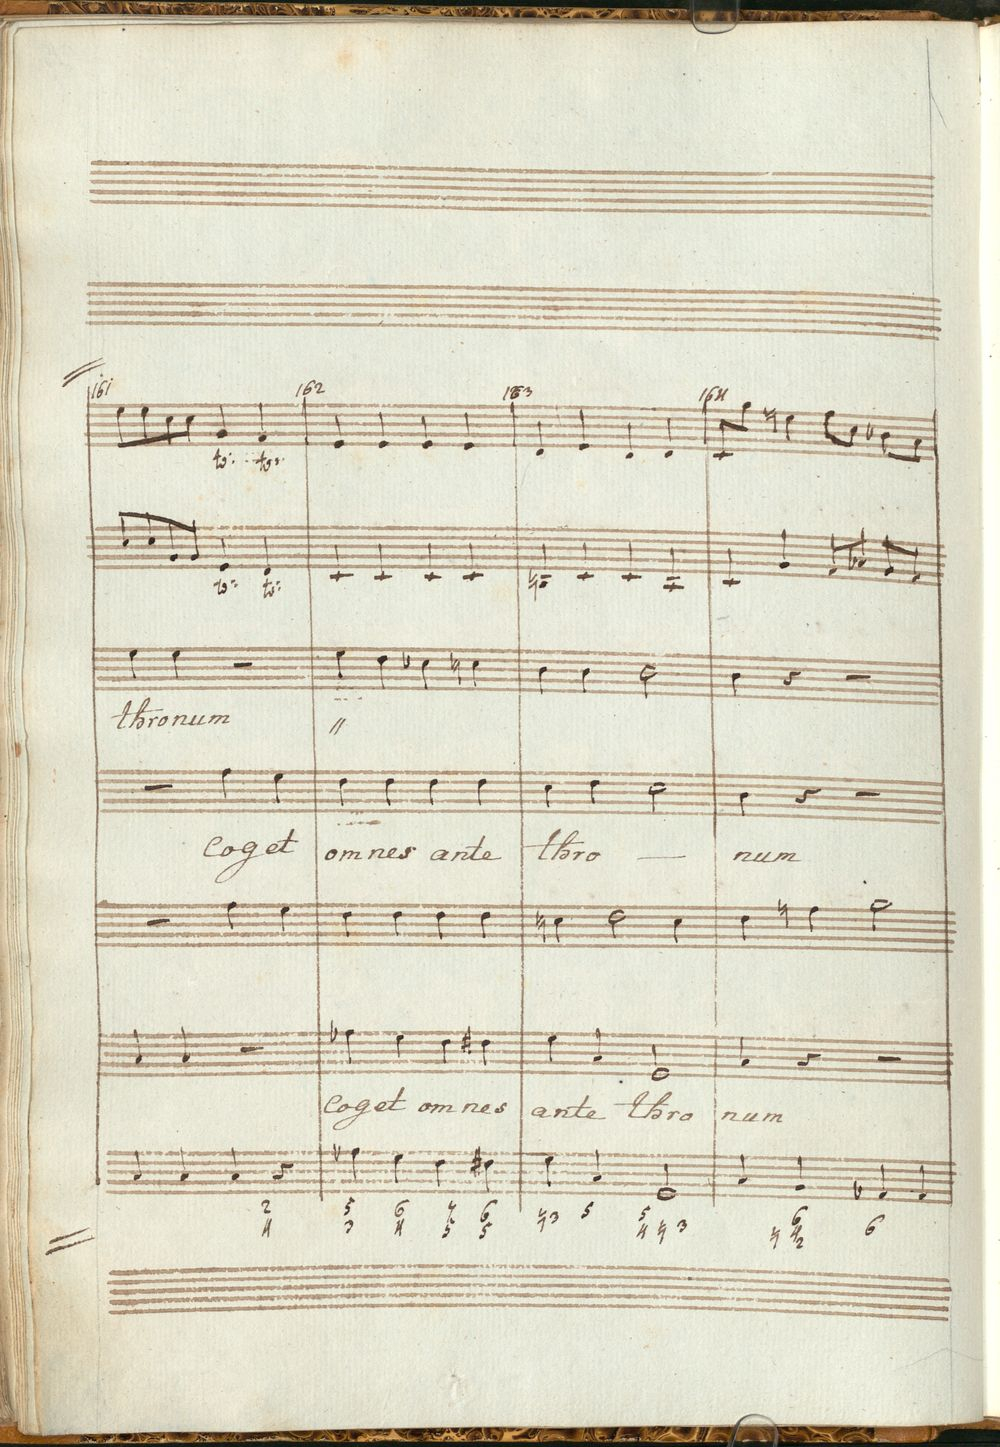 161 162 163 164
tg: tgs:
tg: tg:
thronum //
coget omnes ante thro — num
coget omnes ante thro num
2 5 6 4 6 ♮3 5 5 6 6
4 3 4 5 5 4 ♮ 3 ♮ 4 2